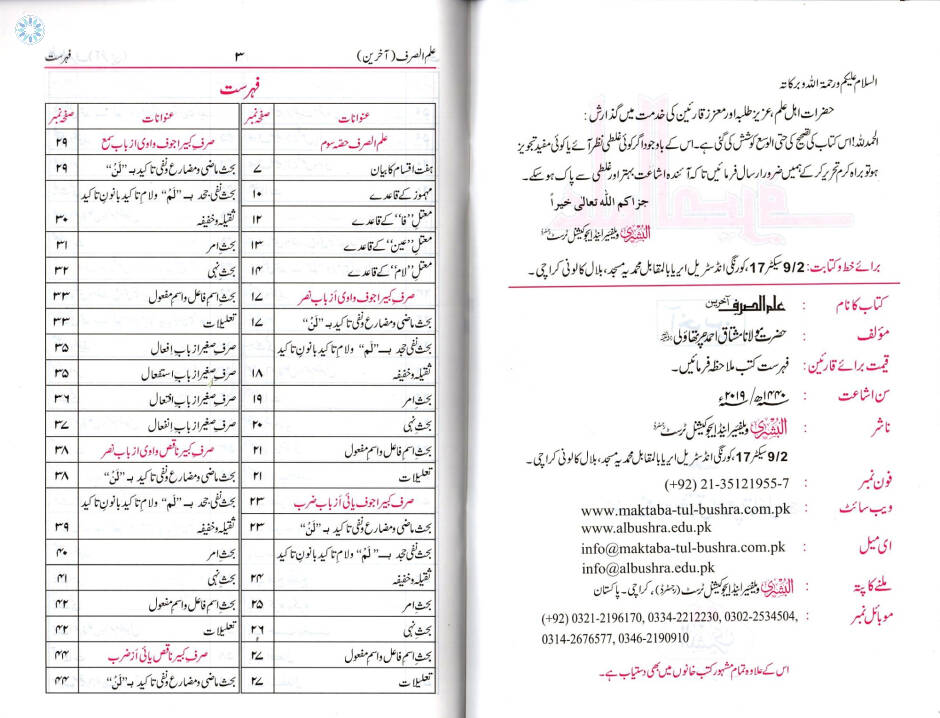 السلام علیکم ورحمۃ اللہ وبرکاتہ
حضرات اہل علم، عزیز طلبہ اور معزز قارئین کی خدمت میں گذارش :
الحمدللہ! اس کتاب کی تصحیح کی حتی الوسع کوشش کی گئی ہے۔ اس کے باوجود اگر کوئی غلطی نظر آئے یا کوئی مفید تجویز
ہو تو براہ کرم تحریر کرکے ہمیں ضرور ارسال فرمائیں تاکہ آئندہ اشاعت بہتر اور غلطی سے پاک ہوسکے۔
جزاکم اللہ تعالی خیراً
البشریٰ ویلفیئر اینڈ ایجوکیشنل ٹرسٹ
برائے خط و کتابت : 9/2 سیکٹر 17، کورنگی انڈسٹریل ایریا بالمقابل محمدیہ مسجد، بلال کالونی کراچی۔
کتاب کا نام : علم الصرف آخرین
مؤلف : حضرت مولانا مشتاق احمد چرتھاولی
قیمت برائے قارئین : فہرست کتب ملاحظہ فرمائیں۔
سن اشاعت : ۱۴۴۰ھ/ ۲۰۱۹ء
ناشر : البشریٰ ویلفیئر اینڈ ایجوکیشنل ٹرسٹ
9/2 سیکٹر 17، کورنگی انڈسٹریل ایریا بالمقابل محمدیہ مسجد، بلال کالونی کراچی۔
فون نمبر : (+92) 21-35121955-7
ویب سائٹ : www.maktaba-tul-bushra.com.pk
www.albushra.edu.pk
ای میل : info@maktaba-tul-bushra.com.pk
info@albushra.edu.pk
ملنے کا پتہ : البشریٰ ویلفیئر اینڈ ایجوکیشنل ٹرسٹ (رجسٹرڈ)، کراچی۔ پاکستان
موبائل نمبر : (+92) 0321-2196170, 0334-2212230, 0302-2534504,
0314-2676577, 0346-2190910
اس کے علاوہ تمام مشہور کتب خانوں میں بھی دستیاب ہے۔
علم الصرف (آخرین) ۳ فہرست
فہرست
عنوانات صفحہ نمبر
علم الصرف حصّہ سوم
ہفت اقسام کا بیان ۷
مہموز کے قاعدے ۱۰
معتل ”فا“ کے قاعدے ۱۲
معتل ”عین“ کے قاعدے ۱۳
معتل ”لام“ کے قاعدے ۱۴
صرفِ کبیر اجوف واوی از باب نصر ۱۷
بحث ماضی و مضارع و نفی تاکید بـ ”لَنْ“ ۱۷
بحث نفی جحد بـ ”لَمْ“ ولام تاکید بانون تاکید
ثقیلہ و خفیفہ ۱۸
بحث امر ۱۹
بحث نہی ۲۰
بحث اسم فاعل و اسم مفعول ۲۱
تعلیلات ۲۱
صرفِ کبیر اجوف یائی از باب ضرب ۲۳
بحث ماضی و مضارع و نفی تاکید بـ ”لَنْ“ ۲۳
بحث نفی جحد بـ ”لَمْ“ ولام تاکید بانون تاکید
ثقیلہ و خفیفہ ۲۴
بحث امر ۲۵
بحث نہی ۲۶
بحث اسم فاعل و اسم مفعول ۲۷
تعلیلات ۲۷
عنوانات صفحہ نمبر
صرفِ کبیر اجوف واوی از باب سمع ۲۹
بحث ماضی و مضارع و نفی تاکید بـ ”لَنْ“ ۲۹
بحث نفی جحد بـ ”لَمْ“ ولام تاکید بانون تاکید
ثقیلہ و خفیفہ ۳۰
بحث امر ۳۱
بحث نہی ۳۲
بحث اسم فاعل و اسم مفعول ۳۳
تعلیلات ۳۳
صرفِ صغیر از باب افعال ۳۵
صرفِ صغیر از باب استفعال ۳۵
صرفِ صغیر از باب افتعال ۳۶
صرفِ صغیر از باب انفعال ۳۷
صرفِ کبیر ناقص واوی از باب نصر ۳۸
بحث ماضی و مضارع و نفی تاکید بـ ”لَنْ“ ۳۸
بحث نفی جحد بـ ”لَمْ“ ولام تاکید بانون تاکید
ثقیلہ و خفیفہ ۳۹
بحث امر ۴۰
بحث نہی ۴۱
بحث اسم فاعل و اسم مفعول ۴۲
تعلیلات ۴۲
صرفِ کبیر ناقص یائی از ضرب ۴۴
بحث ماضی و مضارع و نفی تاکید بـ ”لَنْ“ ۴۴